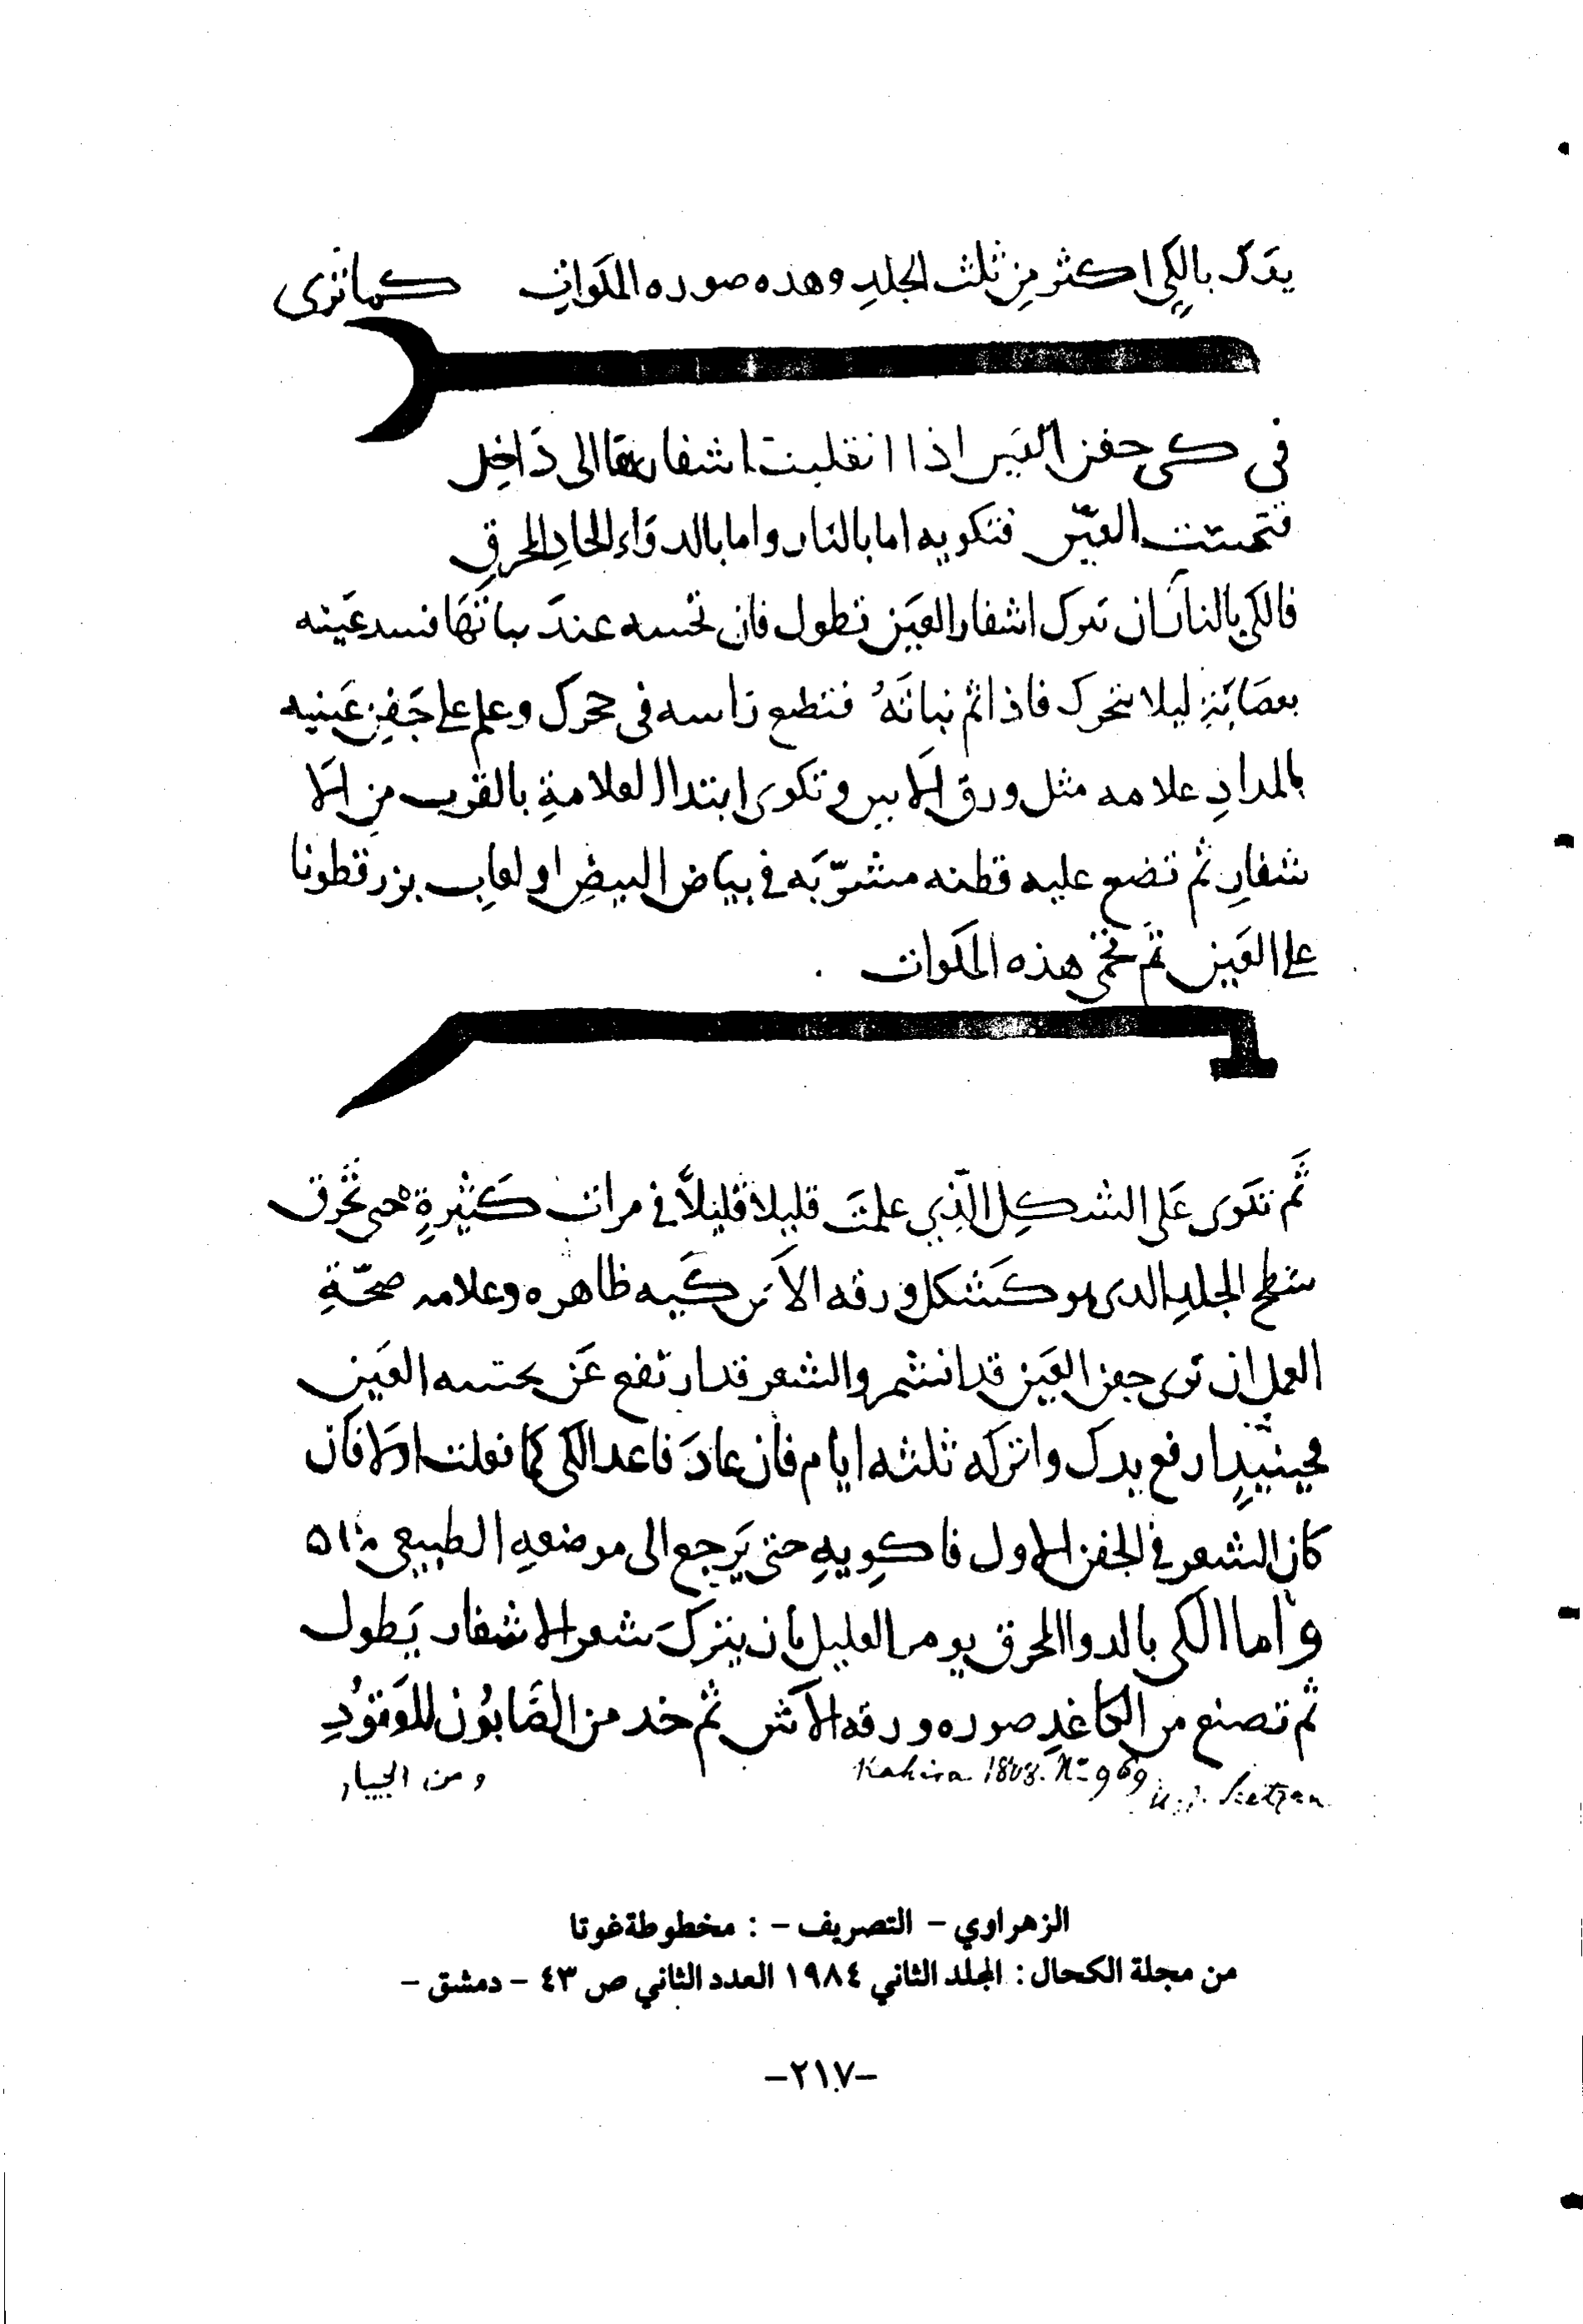 يدك بالكي اكثر مِن ثلث الجلدِ وهذه صوره المكواةِ كما ترى
في كي جفن العين اذا انقلبت اشفارها الى دَاخِل
العيّن فتكويه اما بالنار واما بالدوَاءِ الحادِ المحرقِ
فالكي بالنار ان تترك اشفار العَين تطول فان عندَ نباتهَا عَينه
ليلا تتحرك فاذا تم نباتَهُ فتضع راسه في حجرك وعلم على جَفنِ عَينيه
بالمدادِ علامه مثل ورق الاس وتكوى ابتدا العلامةِ بالقرب مِن الا
شفارِ ثم تضع عليه قطنه مشرّبَه في بيَاض البيضِ او لعابِ بزر قطونا
على العَين ثم تحمى هذه المكوات
ثَم تكوى عَلى الشكِل الّذِي علمتَ قليلا قليلاً في مرات كَثيرةٍ حتى تحُرق
سَطح الجلدِ الدى هو كَشكل ورقه الاَس كَيه ظاهره وعلامه صحّةِ
العمل ان ترى جفن العَين قد انشمر والشعر قد ارتفع عَن العَين
فحينيدٍ ارفع يدك واتركه ثلثه ايام فان عادَ فاعد الكى كما فعلت اولا فان
كان الشعر في الجفن الاول فاكوِيهِ حتى يَرجع الى موضعهِ الطبيعي
واما الكى بالدوا المحرق يومر العليل بان يتركَ شعر الاشفار يَطول
ثم تصنع من الكاغدِ صوره ورقه الاَس ثم خد من الصَابوُن للوَقوُدِ
ومن الجيار
Kahira 1808. No 969
U. J. Seetzen
الزهراوي - التصريف - : مخطوطة غوتا
من مجلة الكحال : المجلد الثاني ١٩٨٤ العدد الثاني ص ٤٣ - دمشق -
-٢١٧-